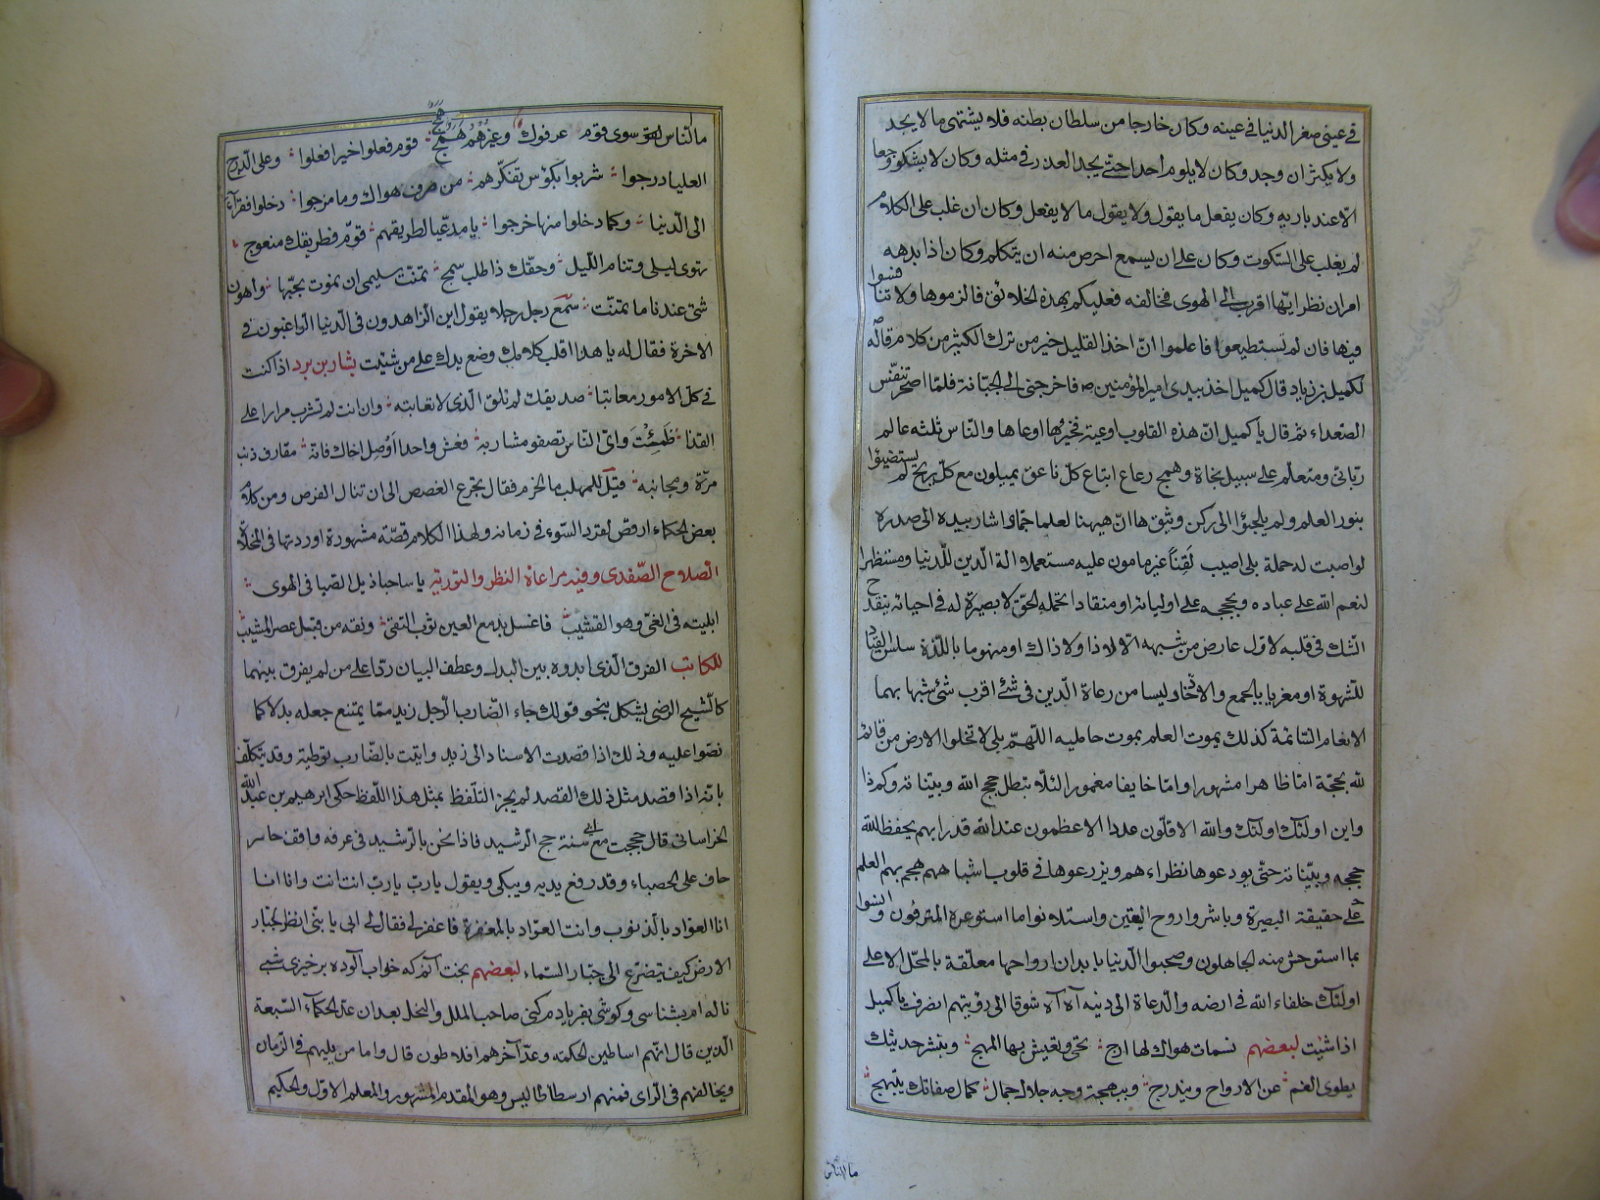 في عيني صغر الدنيا في عينه وكان خارجا من سلطان بطنه فلا يشتهي ما لا يجد
ولا يكثر ان وجد وكان لا يلوم احدا حتى يجد العذر في مثله وكان لا يشكو وجعا
الا عند باريه وكان يفعل ما يقول ولا يقول ما لا يفعل وكان ان غلب على الكلام
لم يغلب على السكوت وكان على ان يسمع احرص منه ان يتكلم وكان اذا بدهه
امران نظر ايهما اقرب الى الهوى فخالفه فعليكم بهذه الخلائق فالزموها ولا تنافسوا
فيها فان لم تستطيعوا فاعلموا ان اخذ القليل خير من ترك الكثير من كلام قاله
لكميل بن زياد قال كميل اخذ بيدي امير المؤمنين فاخرجني الى الجبانة فلما اصحر تنفس
الصعداء ثم قال يا كميل ان هذه القلوب اوعية فخيرها اوعاها والناس ثلثه عالم
رباني ومتعلم على سبيل نجاة وهمج رعاع اتباع كل ناعق يميلون مع كل ريح لم يستضيئوا
بنور العلم ولم يلجؤا الى ركن وثيق ها ان هيهنا لعلما جما واشار بيده الى صدره
لو اصبت له حملة بلى اصيب لقنا غير مامون عليه مستعملا الة الدين للدنيا ومستظهرا
لنعم الله على عباده وبحججه على اوليائه او منقادا لحملة الحق لا بصيرة له في احيائه ينقدح
الشك في قلبه لاول عارض من شبهه الا لا ذا ولا ذاك او منهوما باللذة سلس القياد
للشهوة او مغريا بالجمع والادخار وليسا من رعاة الدين في شئ اقرب شئ شبها بهما
الانعام السائمة كذلك يموت العلم بموت حامليه اللهم بلى لا تخلوا الارض من قائم
لله بحجة اما ظاهرا مشهورا واما خايفا مغمورا لئلا تبطل حجج الله وبيناته وكم ذا
واين اولئك اولئك والله الاقلون عددا الاعظمون عند الله قدرا بهم يحفظ الله
حججه وبيناته حتى يودعوها نظراءهم ويزرعوها في قلوب اشباههم هجم بهم العلم
على حقيقة البصيرة وباشروا روح اليقين واستلانوا ما استوعره المترفون وانسوا
بما استوحش منه الجاهلون وصحبوا الدنيا بابدان ارواحها معلقة بالمحل الاعلى
اولئك خلفاء الله في ارضه والدعاة الى دينه آه آه شوقا الى رؤيتهم انصرف يا كميل
اذا شئت لبعضهم نسمات هواك لها ارج تحيى وتعيش بها المهج وبنشر حديثك
يطوى الغم عن الارواح ويندرج وببهجة وجه جلال جمال كمال صفاتك يبتهج
ما الناس
ما الناس سوى قوم عرفوك وغيرهم همج قوم فعلوا خيرا فعلوا وعلى الدرج
العليا درجوا شربوا بكؤس تفكرهم من صرف هواك وما مزجوا دخلوا فقراء
الى الدنيا وكما دخلوا منها خرجوا يا مدعيا لطريقهم قوم فطريقك منعوج
تهوى ليلى وتنام الليل وحقك ذا طلب سمج تمنت سليمى ان نموت بحبها واهون
شئ عندنا ما تمنت سمع رجل رجلا يقول اين الزاهدون في الدنيا الراغبون في
الاخرة فقال له يا هذا اقلب كلامك وضع يدك على من شئت بشار بن برد اذا كنت
في كل الامور معاتبا صديقك لم تلق الذى لا تعاتبه وان انت لم تشرب مرارا على
القذا ظمئت واى الناس تصفو مشاربه فعش واحدا او صل اخاك فانه مقارف ذنب
مرة ومجانبه قيل للمهلب ما الحزم فقال تجرع الغصص الى ان تنال الفرص ومن كلام
بعض الحكماء ارقص لقرد السوء في زمانه ولهذا الكلام قصة مشهورة اوردتها في المخلاة
الصلاح الصفدى وفيه مراعاة النظر والتورية يا ساحبا ذيل الصبا في الهوى
ابليته في الغى وهو القشيب فاغسل بدمع العين ثوب التقى ونقه من قبل عصر المشيب
للكاتب الفرق الذى ابدوه بين البدل وعطف البيان ردا على من لم يفرق بينهما
كالشيخ الرضى يشكل بنحو قولك جاء الضارب الرجل زيد مما يمتنع جعله بدلا كما
نصوا عليه وذلك اذا قصدت الاسناد الى زيد وايتت بالضارب توطية وقد يتكلف
بانه اذا قصد مثل ذلك القصد لم يجز التلفظ بمثل هذا اللفظ حكى ابرهيم بن عبد الله
الخراسانى قال حججت مع ابى سنة حج الرشيد فاذا نحن بالرشيد في عرفه واقف حاسر
حاف على الحصباء وقد رفع يديه ويبكى ويقول يا رب يا رب انت انت وانا انا
انا العواد بالذنوب وانت العواد بالمغفرة فاغفر لى فقال لى ابى يا بنى انظر الى جبار
الارض كيف يتضرع الى جبار السماء لبعضهم بخت آنم كه خواب آلوده برخيزى شبى
ناله ام بشناسى وكوشى بفريادم كنى صاحب الملل والنحل بعد ان عد الحكماء السبعة
الذين قال انهم اساطين الحكمه وعد آخرهم افلاطون قال واما من يليهم في الزمان
ويخالفهم في الراى فمنهم ارسطاطاليس وهو المقدم المشهور والمعلم الاول والحكيم